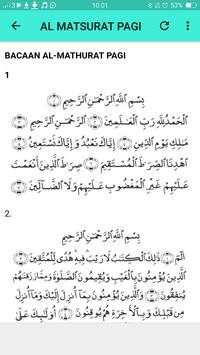 10.01
53%
AL MATSURAT PAGI
BACAAN AL-MATHURAT PAGI
1
بِسْمِ ٱللَّهِ ٱلرَّحْمَٰنِ ٱلرَّحِيمِ ۝
ٱلْحَمْدُ لِلَّهِ رَبِّ ٱلْعَٰلَمِينَ ۝ ٱلرَّحْمَٰنِ ٱلرَّحِيمِ ۝
مَٰلِكِ يَوْمِ ٱلدِّينِ ۝ إِيَّاكَ نَعْبُدُ وَإِيَّاكَ نَسْتَعِينُ ۝
ٱهْدِنَا ٱلصِّرَٰطَ ٱلْمُسْتَقِيمَ ۝ صِرَٰطَ ٱلَّذِينَ أَنْعَمْتَ
عَلَيْهِمْ غَيْرِ ٱلْمَغْضُوبِ عَلَيْهِمْ وَلَا ٱلضَّآلِّينَ ۝
2.
بِسْمِ ٱللَّهِ ٱلرَّحْمَٰنِ ٱلرَّحِيمِ
الٓمٓ ۝ ذَٰلِكَ ٱلْكِتَٰبُ لَا رَيْبَ ۛ فِيهِ ۛ هُدًى لِّلْمُتَّقِينَ ۝
ٱلَّذِينَ يُؤْمِنُونَ بِٱلْغَيْبِ وَيُقِيمُونَ ٱلصَّلَوٰةَ وَمِمَّا رَزَقْنَٰهُمْ
يُنفِقُونَ ۝ وَٱلَّذِينَ يُؤْمِنُونَ بِمَآ أُنزِلَ إِلَيْكَ وَمَآ أُنزِلَ
مِن قَبْلِكَ وَبِٱلْءَاخِرَةِ هُمْ يُوقِنُونَ ۝ أُو۟لَٰٓئِكَ عَلَىٰ